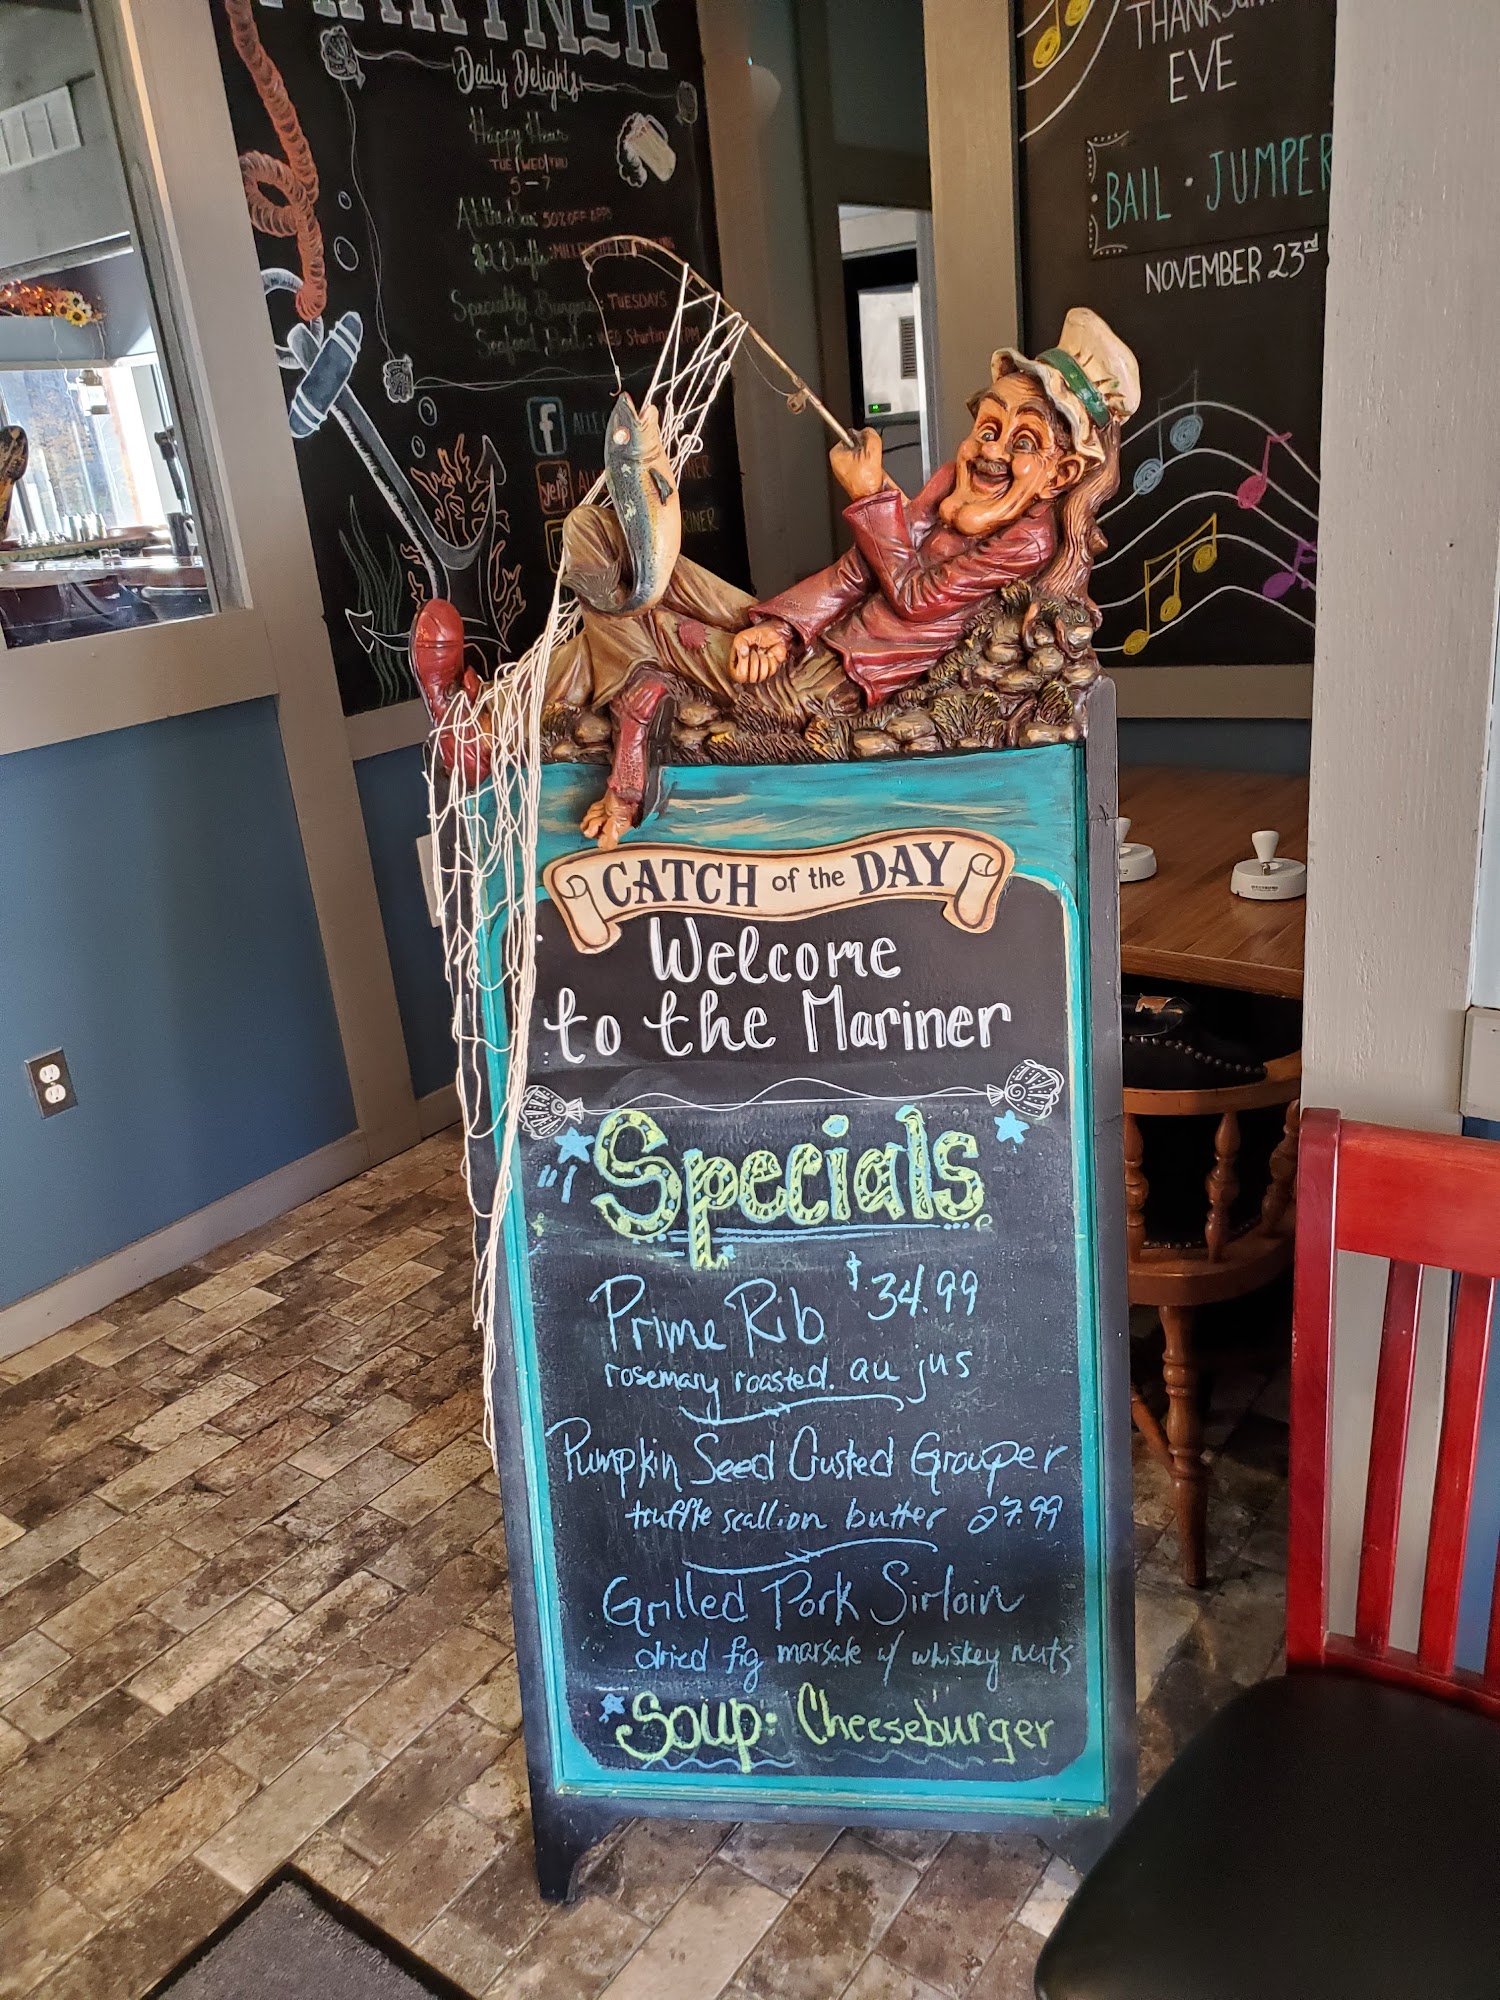 MARINER
Daily Delights
Happy Hour
TUE/WED/THU
5-7
At the Bar: 50% OFF APPS
$2 Drafts:
Specialty Burgers: TUESDAYS
Seafood Boil: WED Starting PM
f ALLE
yelp AL
INER
RINER
THANKSGIVING
EVE
BAIL · JUMPER
NOVEMBER 23rd
CATCH of the DAY
Welcome
to the Mariner
Specials
Prime Rib $34.99
rosemary roasted. au jus
Pumpkin Seed Crusted Grouper
truffle scallion butter 27.99
Grilled Pork Sirloin
dried fig marsale w/ whiskey nuts
Soup: Cheeseburger